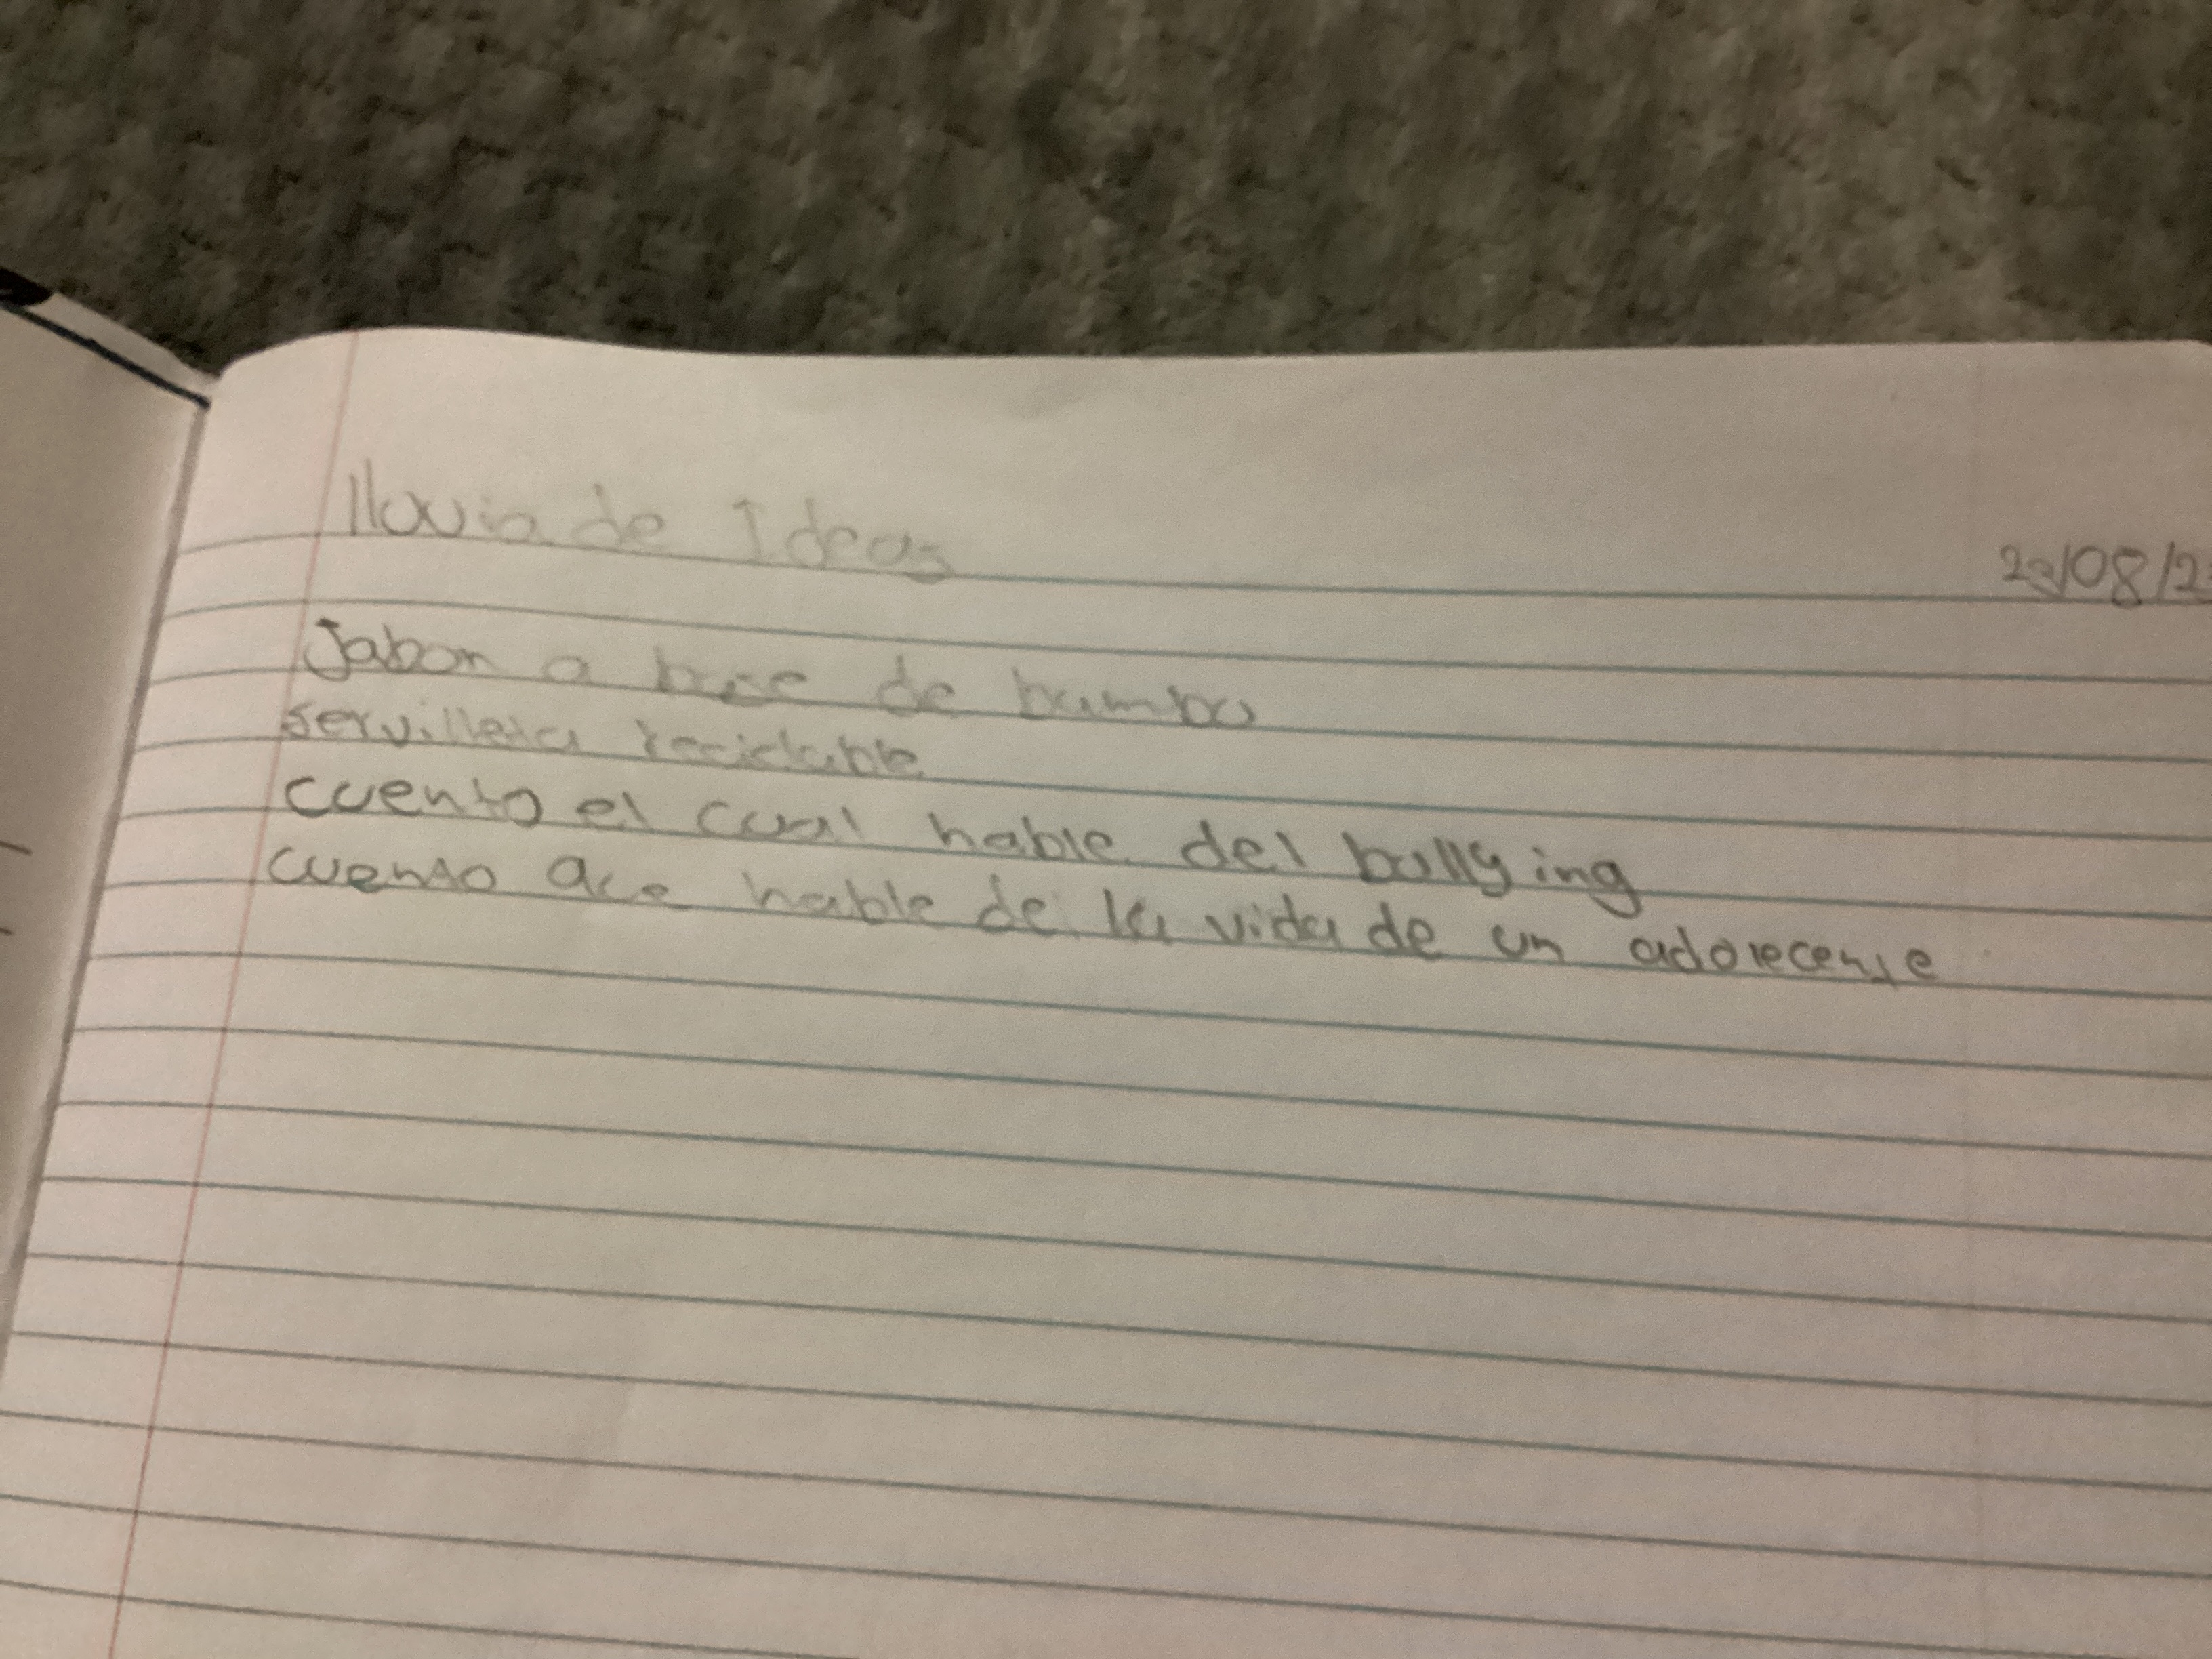 lluvia de Ideas
/08/2
Jabon a base de bambu
servilleta reciclable
cuento el cual hable del bullying
cuento que hable de la vida de un adolecente